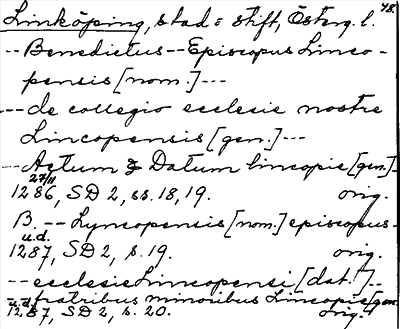 48.
Linköping, stad o stift, Österg. l.
-- Benedictus -- Episcopus Linco-
pensis [nom.] ---
--- de collegio ecclesie nostre
Lincopensis [gen.] ---
--- Actum & Datum lincopie [gen.]
27/11
1286, SD 2, ss. 18, 19. orig.
B. -- Lyncopensis [nom.] episcopus-
u.d.
1287, SD 2, s. 19. orig.
-- ecclesie Lincopensi [dat.] --
-- fratribus minoribus Lincopie [gen
u.d.
1287, SD 2, s. 20. orig.